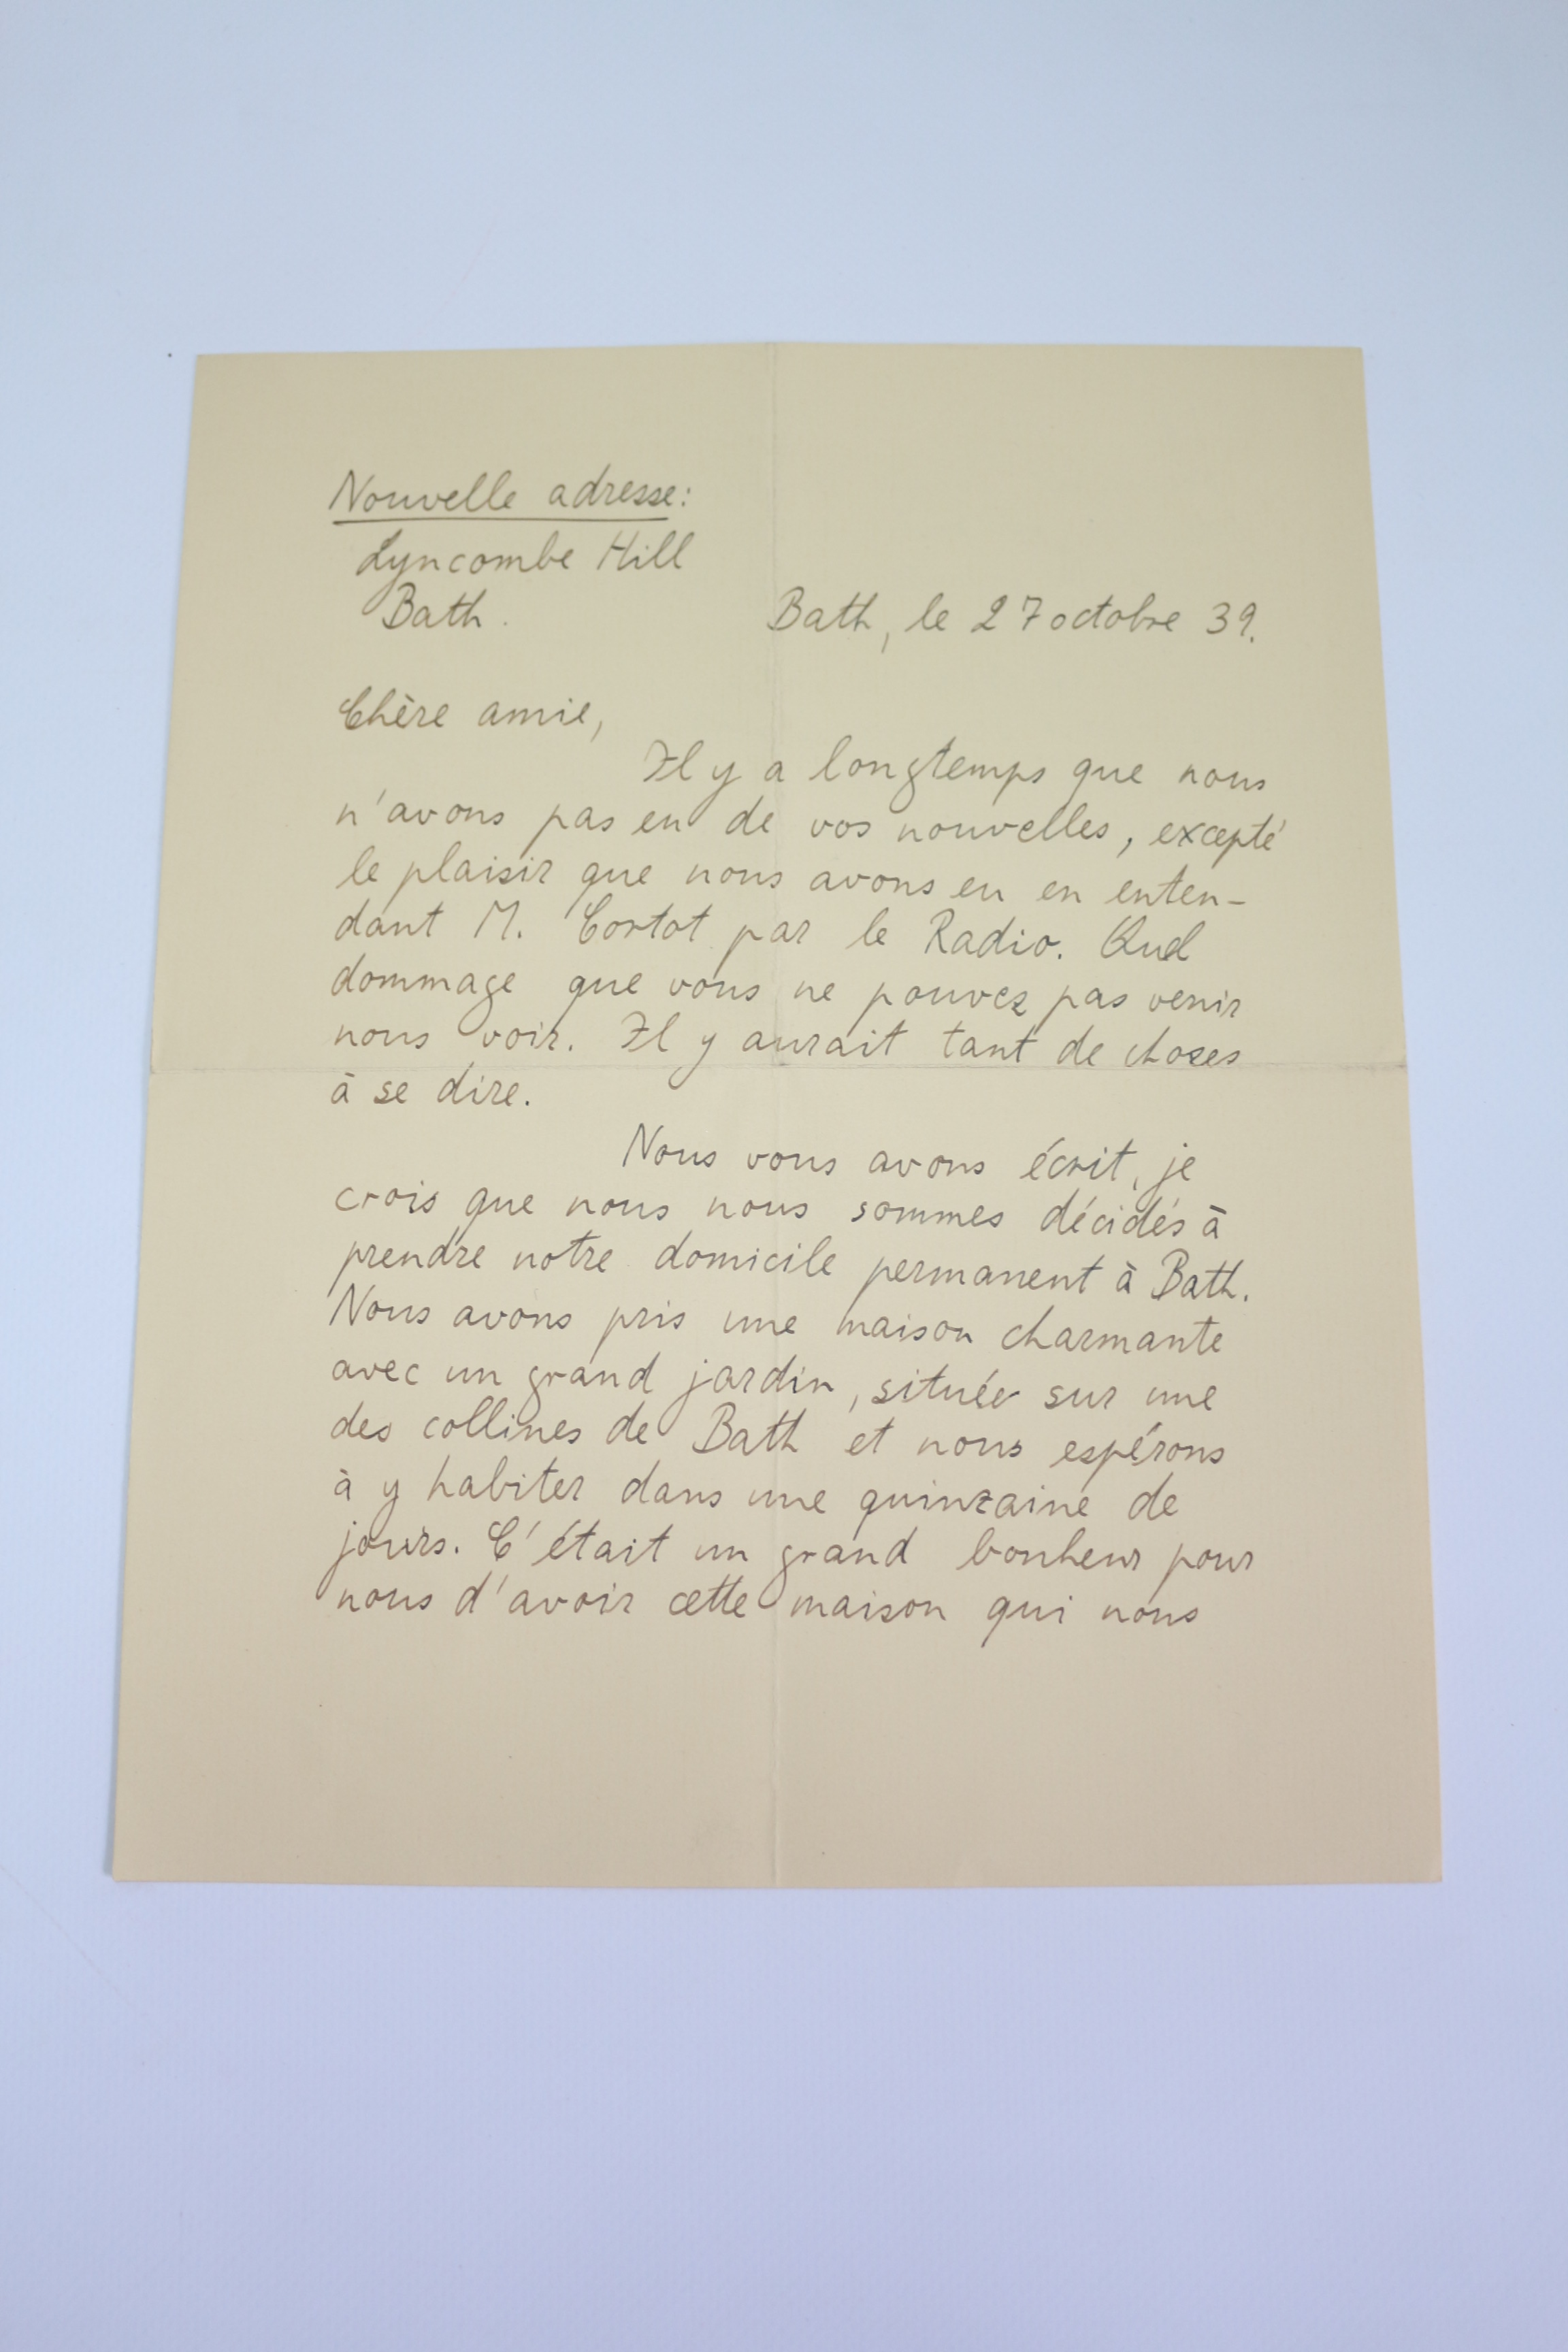 Nouvelle adresse:
Lyncombe Hill
Bath.
Bath, le 27 octobre 39.
Chère amie,
Il y a longtemps que nous
n'avons pas eu de vos nouvelles, excepté
le plaisir que nous avons eu en enten-
dant M. Cortot par le Radio. Quel
dommage que vous ne pouvez pas venir
nous voir. Il y aurait tant de choses
à se dire.
Nous vous avons écrit, je
crois que nous nous sommes décidés à
prendre notre domicile permanent à Bath.
Nous avons pris une maison charmante
avec un grand jardin, située sur une
des collines de Bath et nous espérons
à y habiter dans une quinzaine de
jours. C'était un grand bonheur pour
nous d'avoir cette maison qui nous